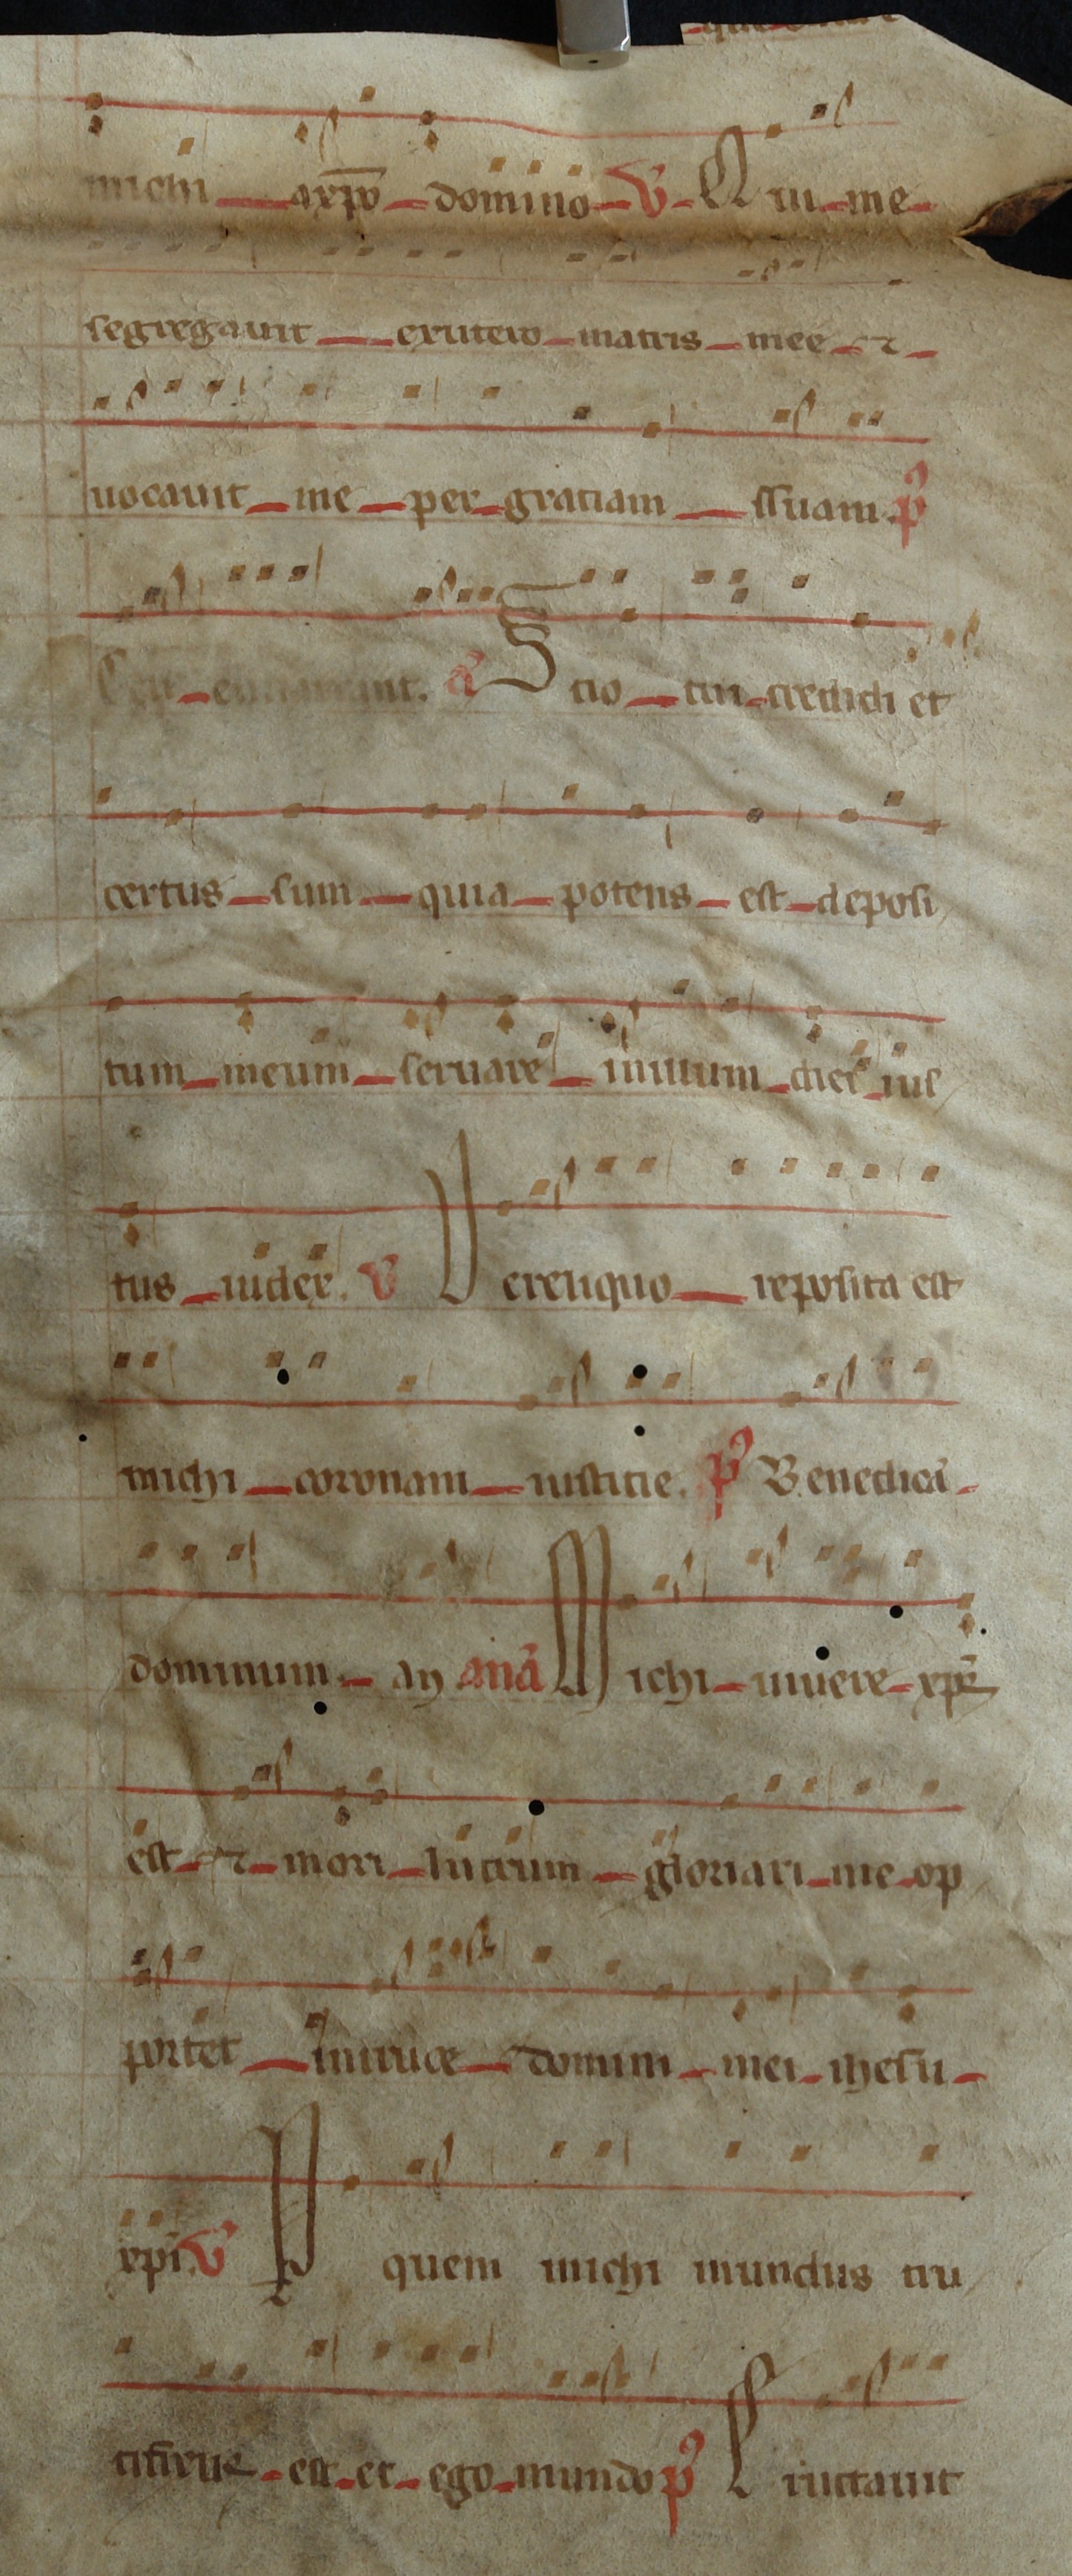 michi axpo domino V Qui me
segregauit exutero matris mee ⁊
uocauit me per gratiam ssuam p̄
Celi enarrant. a Scio cui credidi et
certus sum quia potens est deposi
tum meum seruare inillum diem ius
tus iudex. V Dereliquo reposita est
michi coronam iusticie. p̄ Benedicā
dominum. an ana Michi uiuere xpc
est ⁊ mori lucrum gloriari me op
portet incruce domini mei ihesu
xpi. V P quem michi mundus cru
cifixus est et ego mundo p̄ Eructauit